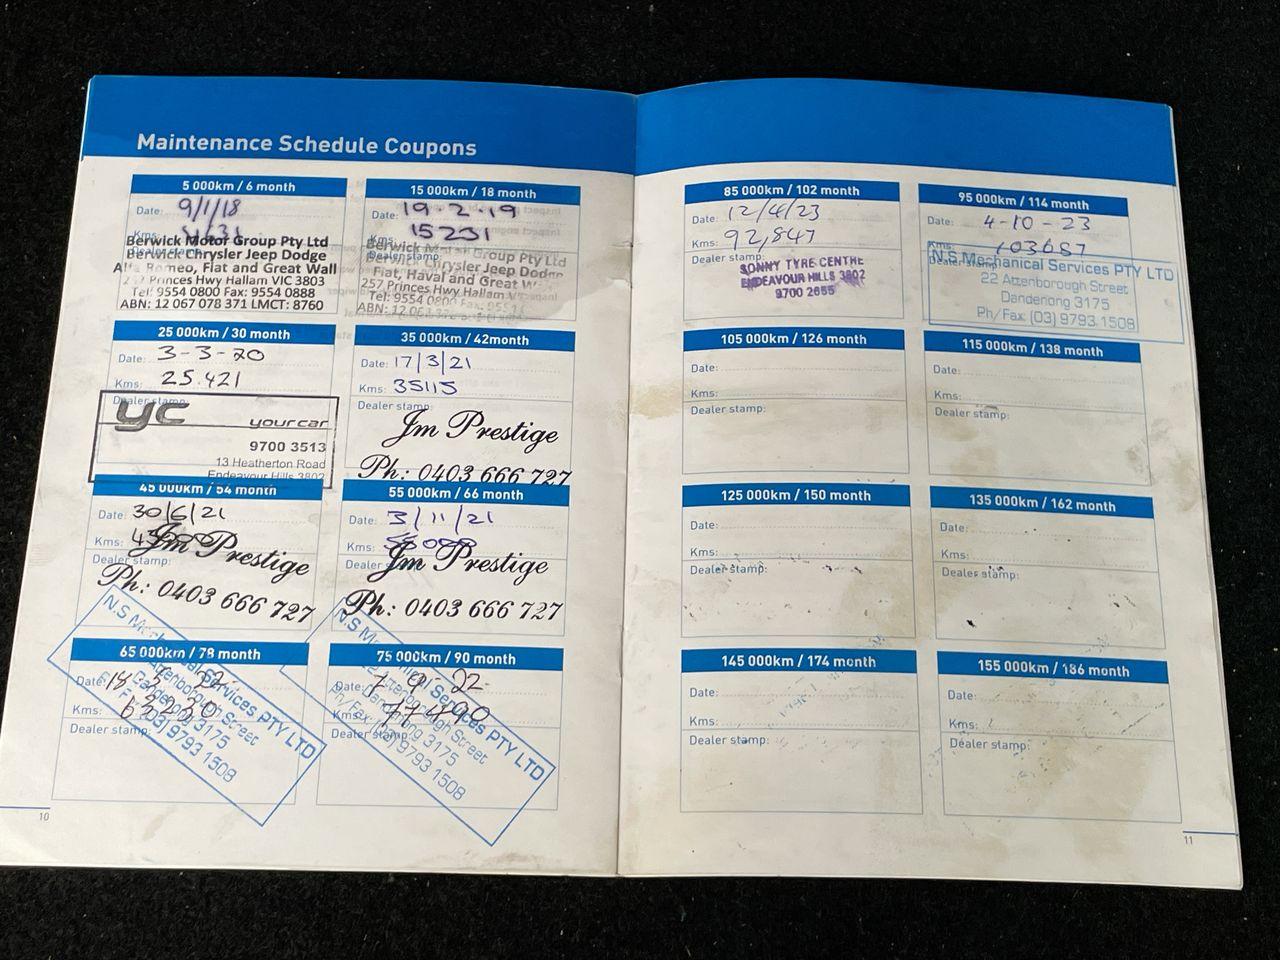 Maintenance Schedule Coupons
5 000km / 6 month
Date: 9/1/18
Kms:
Dealer stamp:
Berwick Motor Group Pty Ltd
Berwick Chrysler Jeep Dodge
Alfa Romeo, Fiat and Great Wall
257 Princes Hwy Hallam VIC 3803
Tel: 9554 0800 Fax: 9554 0888
ABN: 12 067 078 371 LMCT: 8760
15 000km / 18 month
Date: 19-2-19
Kms: 15231
Dealer stamp:
Berwick Group Pty Ltd
Berwick Chrysler Jeep Dodge
Fiat, Haval and Great
257 Princes Hwy Hallam
Tel: 9554 0800
ABN: 12 067
25 000km / 30 month
Date: 3-3-20
Kms: 25.421
Dealer stamp:
yc yourcar
9700 3513
13 Heatherton Road
Endeavour Hills 3802
35 000km / 42month
Date: 17/3/21
Kms: 35115
Dealer stamp:
Jm Prestige
Ph: 0403 666 727
45 000km / 54 month
Date: 30/6/21
Kms:
Dealer stamp:
Jm Prestige
Ph: 0403 666 727
55 000km / 66 month
Date: 3/11/21
Kms:
Dealer stamp:
Jm Prestige
Ph: 0403 666 727
65 000km / 78 month
Date: 18
Kms:
Dealer stamp:
N.S Mechanical Services PTY LTD
Attenborough Street
Dandenong 3175
(03) 9793 1508
75 000km / 90 month
Date: 22
Kms:
Dealer stamp:
N.S Mechanical Services PTY LTD
Attenborough Street
Dandenong 3175
Ph/Fax: (03) 9793 1508
10
85 000km / 102 month
Date: 12/4/23
Kms: 92,847
Dealer stamp:
SONNY TYRE CENTRE
ENDEAVOUR HILLS 3802
9700 2655
95 000km / 114 month
Date: 4-10-23
Kms: 103687
Dealer stamp:
N.S Mechanical Services PTY LTD
22 Attenborough Street
Dandenong 3175
Ph/Fax: (03) 9793 1508
105 000km / 126 month
Date:
Kms:
Dealer stamp:
115 000km / 138 month
Date:
Kms:
Dealer stamp:
125 000km / 150 month
Date:
Kms:
Dealer stamp:
135 000km / 162 month
Date:
Kms:
Dealer stamp:
145 000km / 174 month
Date:
Kms:
Dealer stamp:
155 000km / 186 month
Date:
Kms:
Dealer stamp:
11